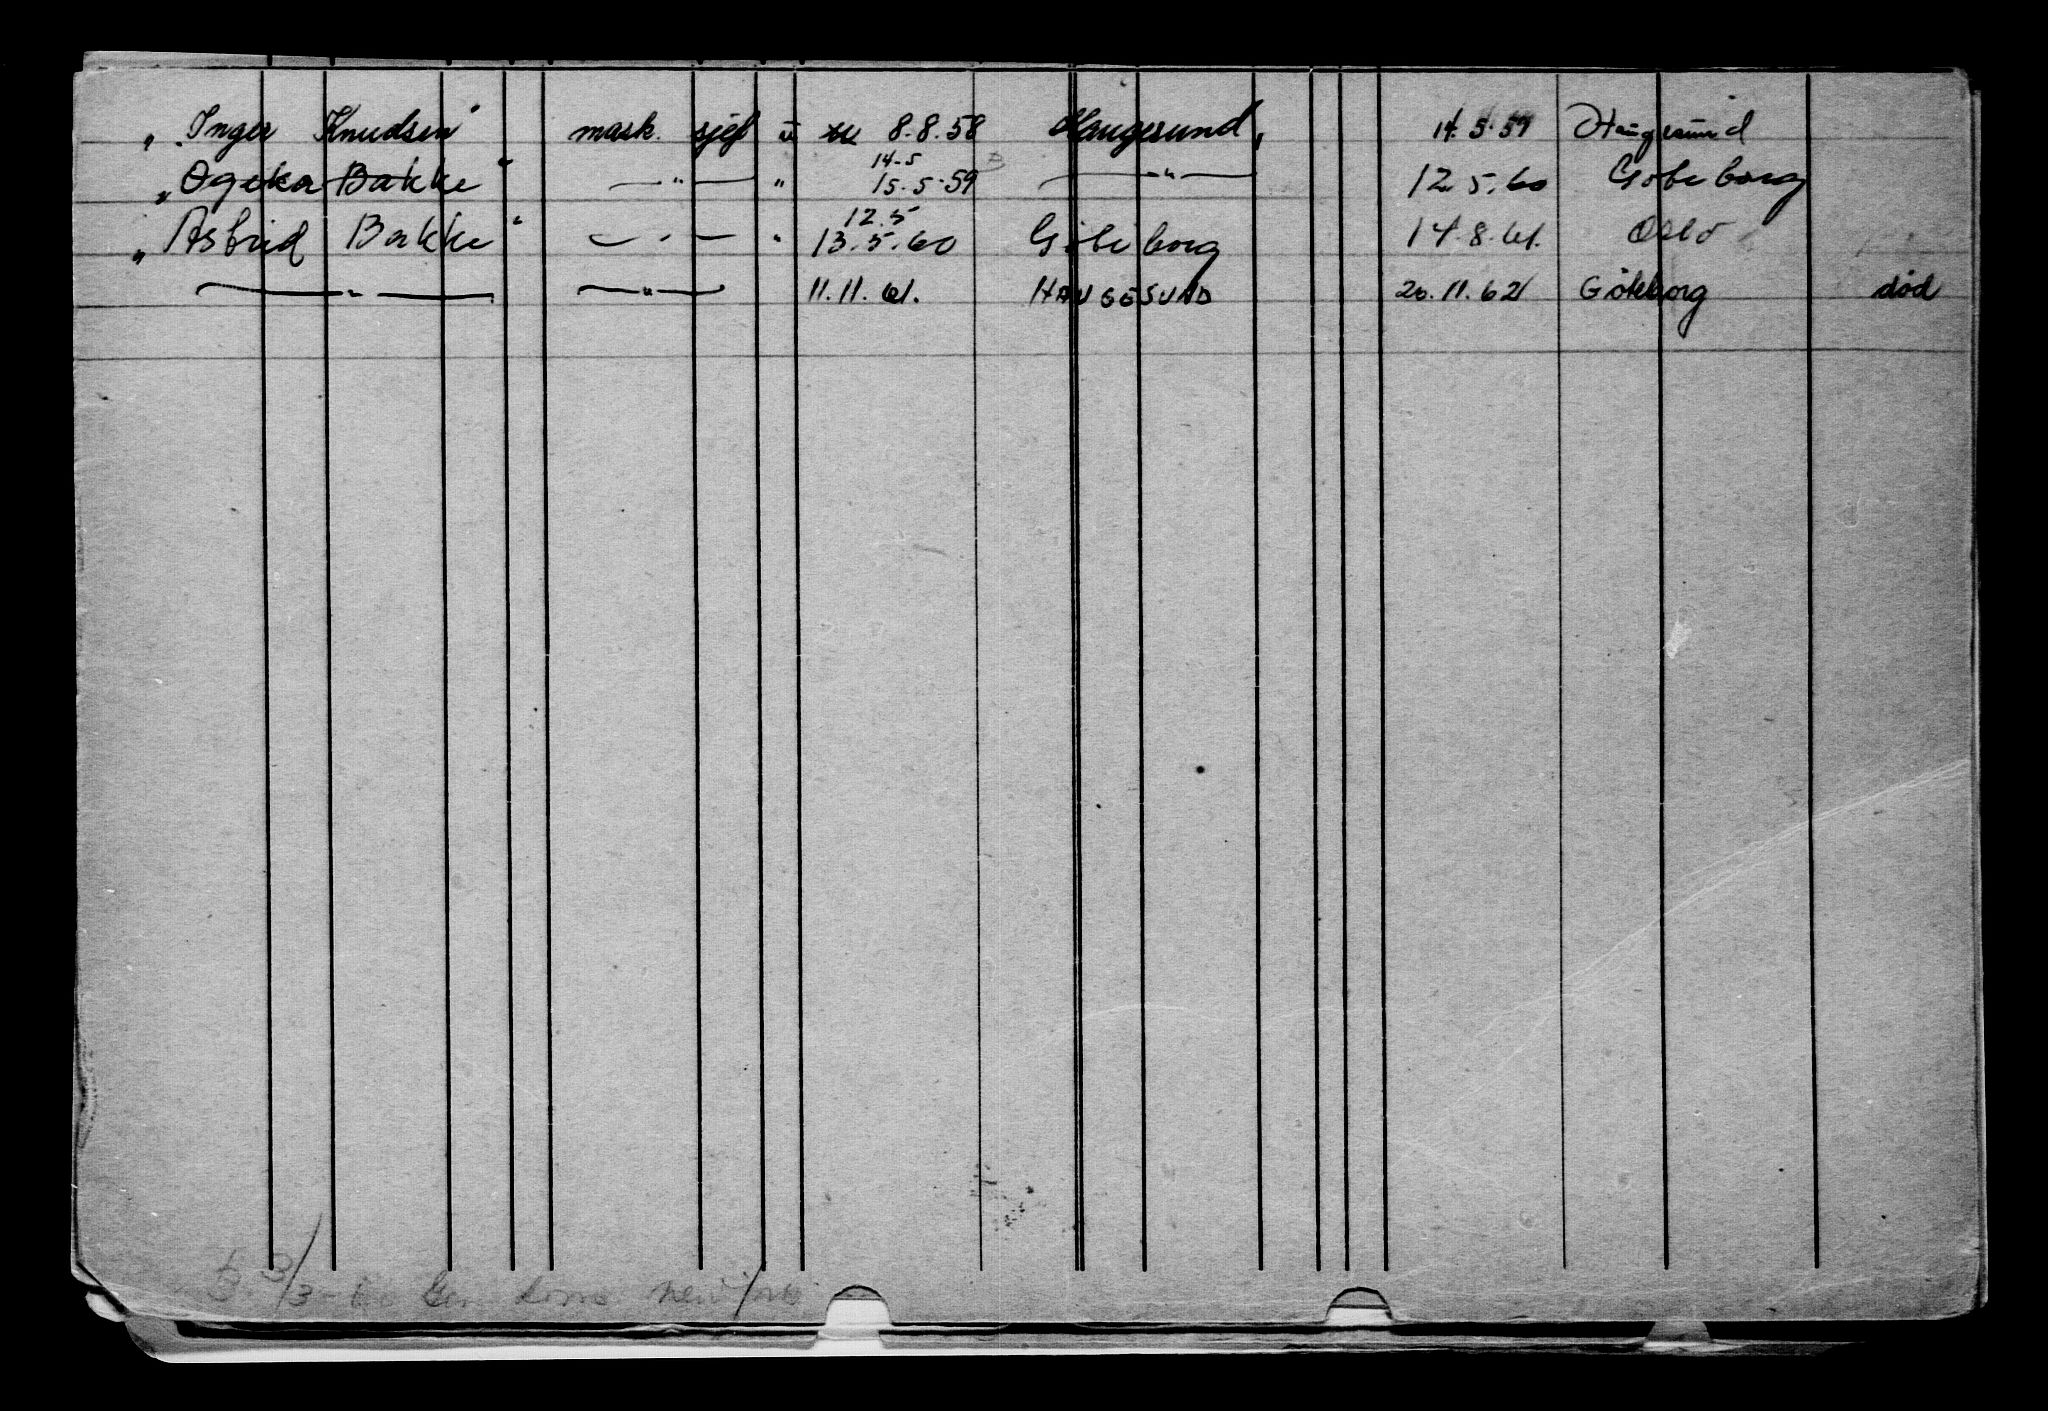 „ Inger Knudsen" mask. sjef u 8.8.58 Haugesund, 14.5.59 Haugesund
14-5
„ Ogeka Bakke" —„— „ 15.5.59 —„— 12.5.60 Göteborg
12.5
„ Astrid Bakke" —„— „ 13.5.60 Göteborg 14.8.61. Oslo
—„— —„— 11.11.61. HAUGESUND 20.11.62 Göteborg død
3/3- Gen. kons. New York